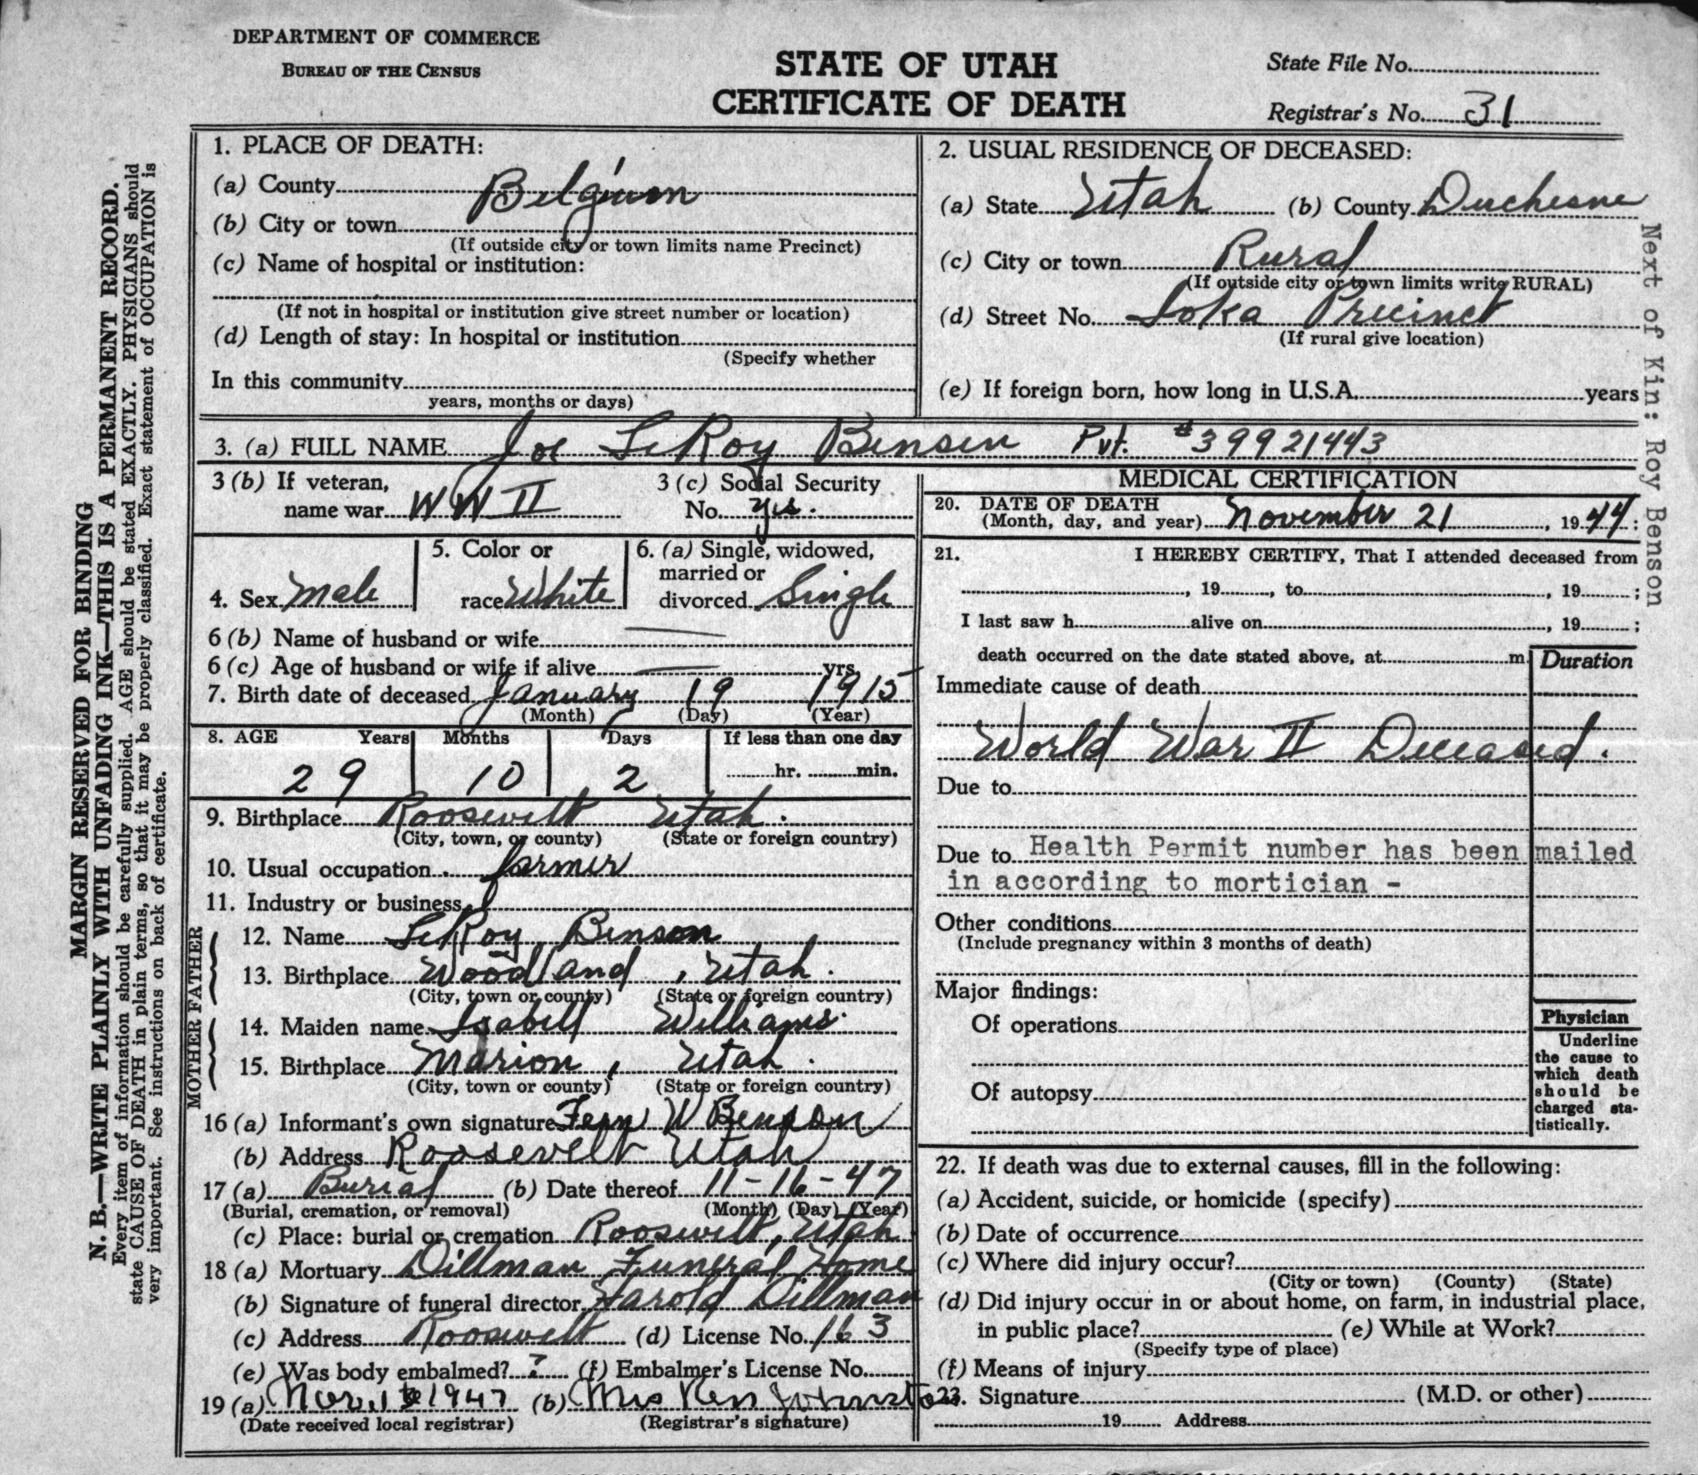 DEPARTMENT OF COMMERCE
BUREAU OF THE CENSUS
STATE OF UTAH
CERTIFICATE OF DEATH
State File No.
Registrar's No. 31
MARGIN RESERVED FOR BINDING
N. B.—WRITE PLAINLY WITH UNFADING INK—THIS IS A PERMANENT RECORD.
Every item of information should be carefully supplied. AGE should be stated EXACTLY. PHYSICIANS should
state CAUSE OF DEATH in plain terms, so that it may be properly classified. Exact statement of OCCUPATION is
very important. See instructions on back of certificate.
1. PLACE OF DEATH:
(a) County Belgium
(b) City or town
(If outside city or town limits name Precinct)
(c) Name of hospital or institution:
(If not in hospital or institution give street number or location)
(d) Length of stay: In hospital or institution
(Specify whether
In this community
years, months or days)
2. USUAL RESIDENCE OF DECEASED:
(a) State Utah (b) County Duchesne
(c) City or town Rural
(If outside city or town limits write RURAL)
(d) Street No. Ioka Precinct
(If rural give location)
(e) If foreign born, how long in U.S.A. years
Next of Kin: Roy Benson
3. (a) FULL NAME Joe LeRoy Benson Pvt. #39921443
3 (b) If veteran,
name war WW II
3 (c) Social Security
No. yes.
4. Sex Male
5. Color or
race White
6. (a) Single, widowed,
married or
divorced Single
6 (b) Name of husband or wife
6 (c) Age of husband or wife if alive yrs.
7. Birth date of deceased January 19 1915
(Month) (Day) (Year)
8. AGE Years Months Days If less than one day
29 10 2 hr. min.
9. Birthplace Roosevelt Utah.
(City, town, or county) (State or foreign country)
10. Usual occupation farmer
11. Industry or business
FATHER
12. Name LeRoy Benson
13. Birthplace Woodland, Utah.
(City, town or county) (State or foreign country)
MOTHER
14. Maiden name Isabell Williams
15. Birthplace Marion, Utah.
(City, town or county) (State or foreign country)
16 (a) Informant's own signature Fern W Benson
(b) Address Roosevelt Utah
17 (a) Burial (b) Date thereof 11-16-47
(Burial, cremation, or removal) (Month) (Day) (Year)
(c) Place: burial or cremation Roosevelt, Utah
18 (a) Mortuary Dillman Funeral Home
(b) Signature of funeral director Harold Dillman
(c) Address Roosevelt (d) License No. 163
(e) Was body embalmed? ? (f) Embalmer's License No.
19 (a) Nov. 1947 (b) Mrs Ken Johnston
(Date received local registrar) (Registrar's signature)
MEDICAL CERTIFICATION
20. DATE OF DEATH
(Month, day, and year) November 21, 1944:
21. I HEREBY CERTIFY, That I attended deceased from
, 19 , to , 19 ;
I last saw h alive on , 19 ;
death occurred on the date stated above, at m
Duration
Immediate cause of death
World War II Deceased.
Due to
Due to Health Permit number has been mailed
in according to mortician -
Other conditions
(Include pregnancy within 3 months of death)
Major findings:
Of operations
Of autopsy
Physician
Underline
the cause to
which death
should be
charged sta-
tistically.
22. If death was due to external causes, fill in the following:
(a) Accident, suicide, or homicide (specify)
(b) Date of occurrence
(c) Where did injury occur?
(City or town) (County) (State)
(d) Did injury occur in or about home, on farm, in industrial place,
in public place? (e) While at Work?
(Specify type of place)
(f) Means of injury
23. Signature (M.D. or other)
19 Address